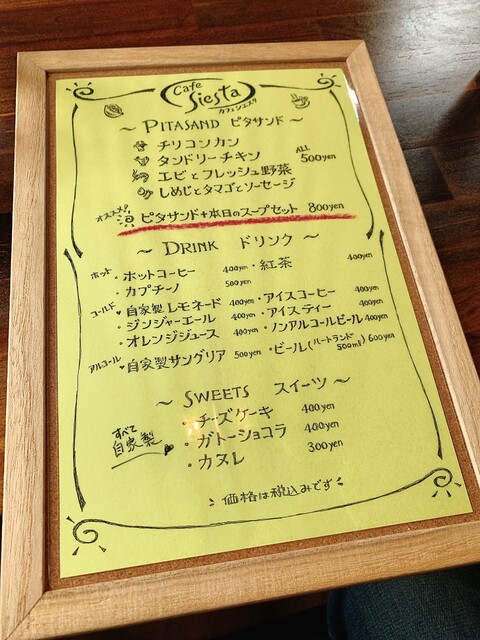 Cafe
Siesta
カフェシエスタ
～ PITASAND ピタサンド ～
チリコンカン
タンドリーチキン ALL
エビとフレッシュ野菜 500yen
しめじとタマゴとソーセージ
オススメ!
ピタサンド+本日のスープセット 800yen
～ DRINK ドリンク ～
ホット ・ホットコーヒー 400yen ・紅茶 400yen
・カプチーノ 500yen
コールド ♥自家製レモネード 400yen ・アイスコーヒー 400yen
・ジンジャーエール 400yen ・アイスティー 400yen
・オレンジジュース 400yen ・ノンアルコールビール 400yen
アルコール ♥自家製サングリア 500yen ・ビール(ハートランド 500ml) 600yen
～ SWEETS スイーツ ～
すべて自家製♥
・チーズケーキ 400yen
・ガトーショコラ 400yen
・カヌレ 300yen
価格は税込みです